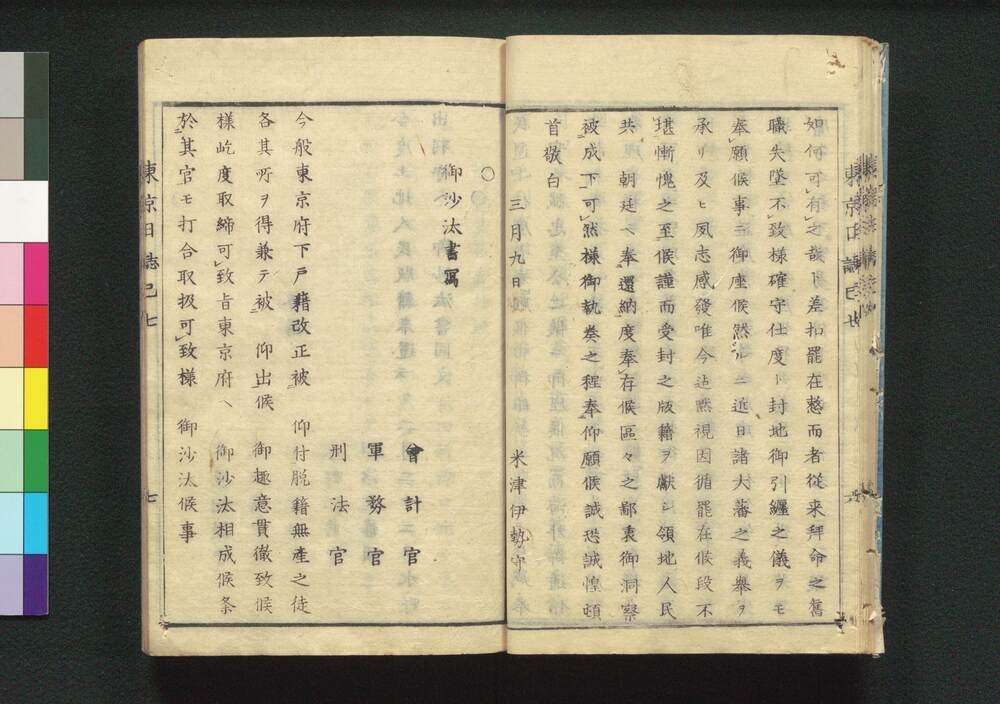 如何可有之哉ト差扣罷在憗而者従来拜命之舊
職失墜不致様確守仕度ト封地御引纏之儀ヲモ
奉願候事ニ御座候然ルニ近日諸大藩之義舉ヲ
承リ及ヒ夙志感發唯今迠黙視因循罷在候段不
堪慚愧之至候謹而受封之版籍ヲ獻シ領地人民
共朝廷ヘ奉還納度奉存候區々之鄙衷御洞察
被成下可然様御執奏之程奉仰願候誠恐誠惶頓
首敬白
三月九日 米津伊勢守
○
御沙汰書寫
會計官
軍務官
刑法官
今般東京府下戸籍改正被 仰付脱籍無產之徒
各其所ヲ得兼テ被 仰出候 御趣意貫徹致候
様屹度取締可致旨東京府ヘ 御沙汰相成候条
於其官モ打合取扱可致様 御沙汰候事
東京日誌己七 七